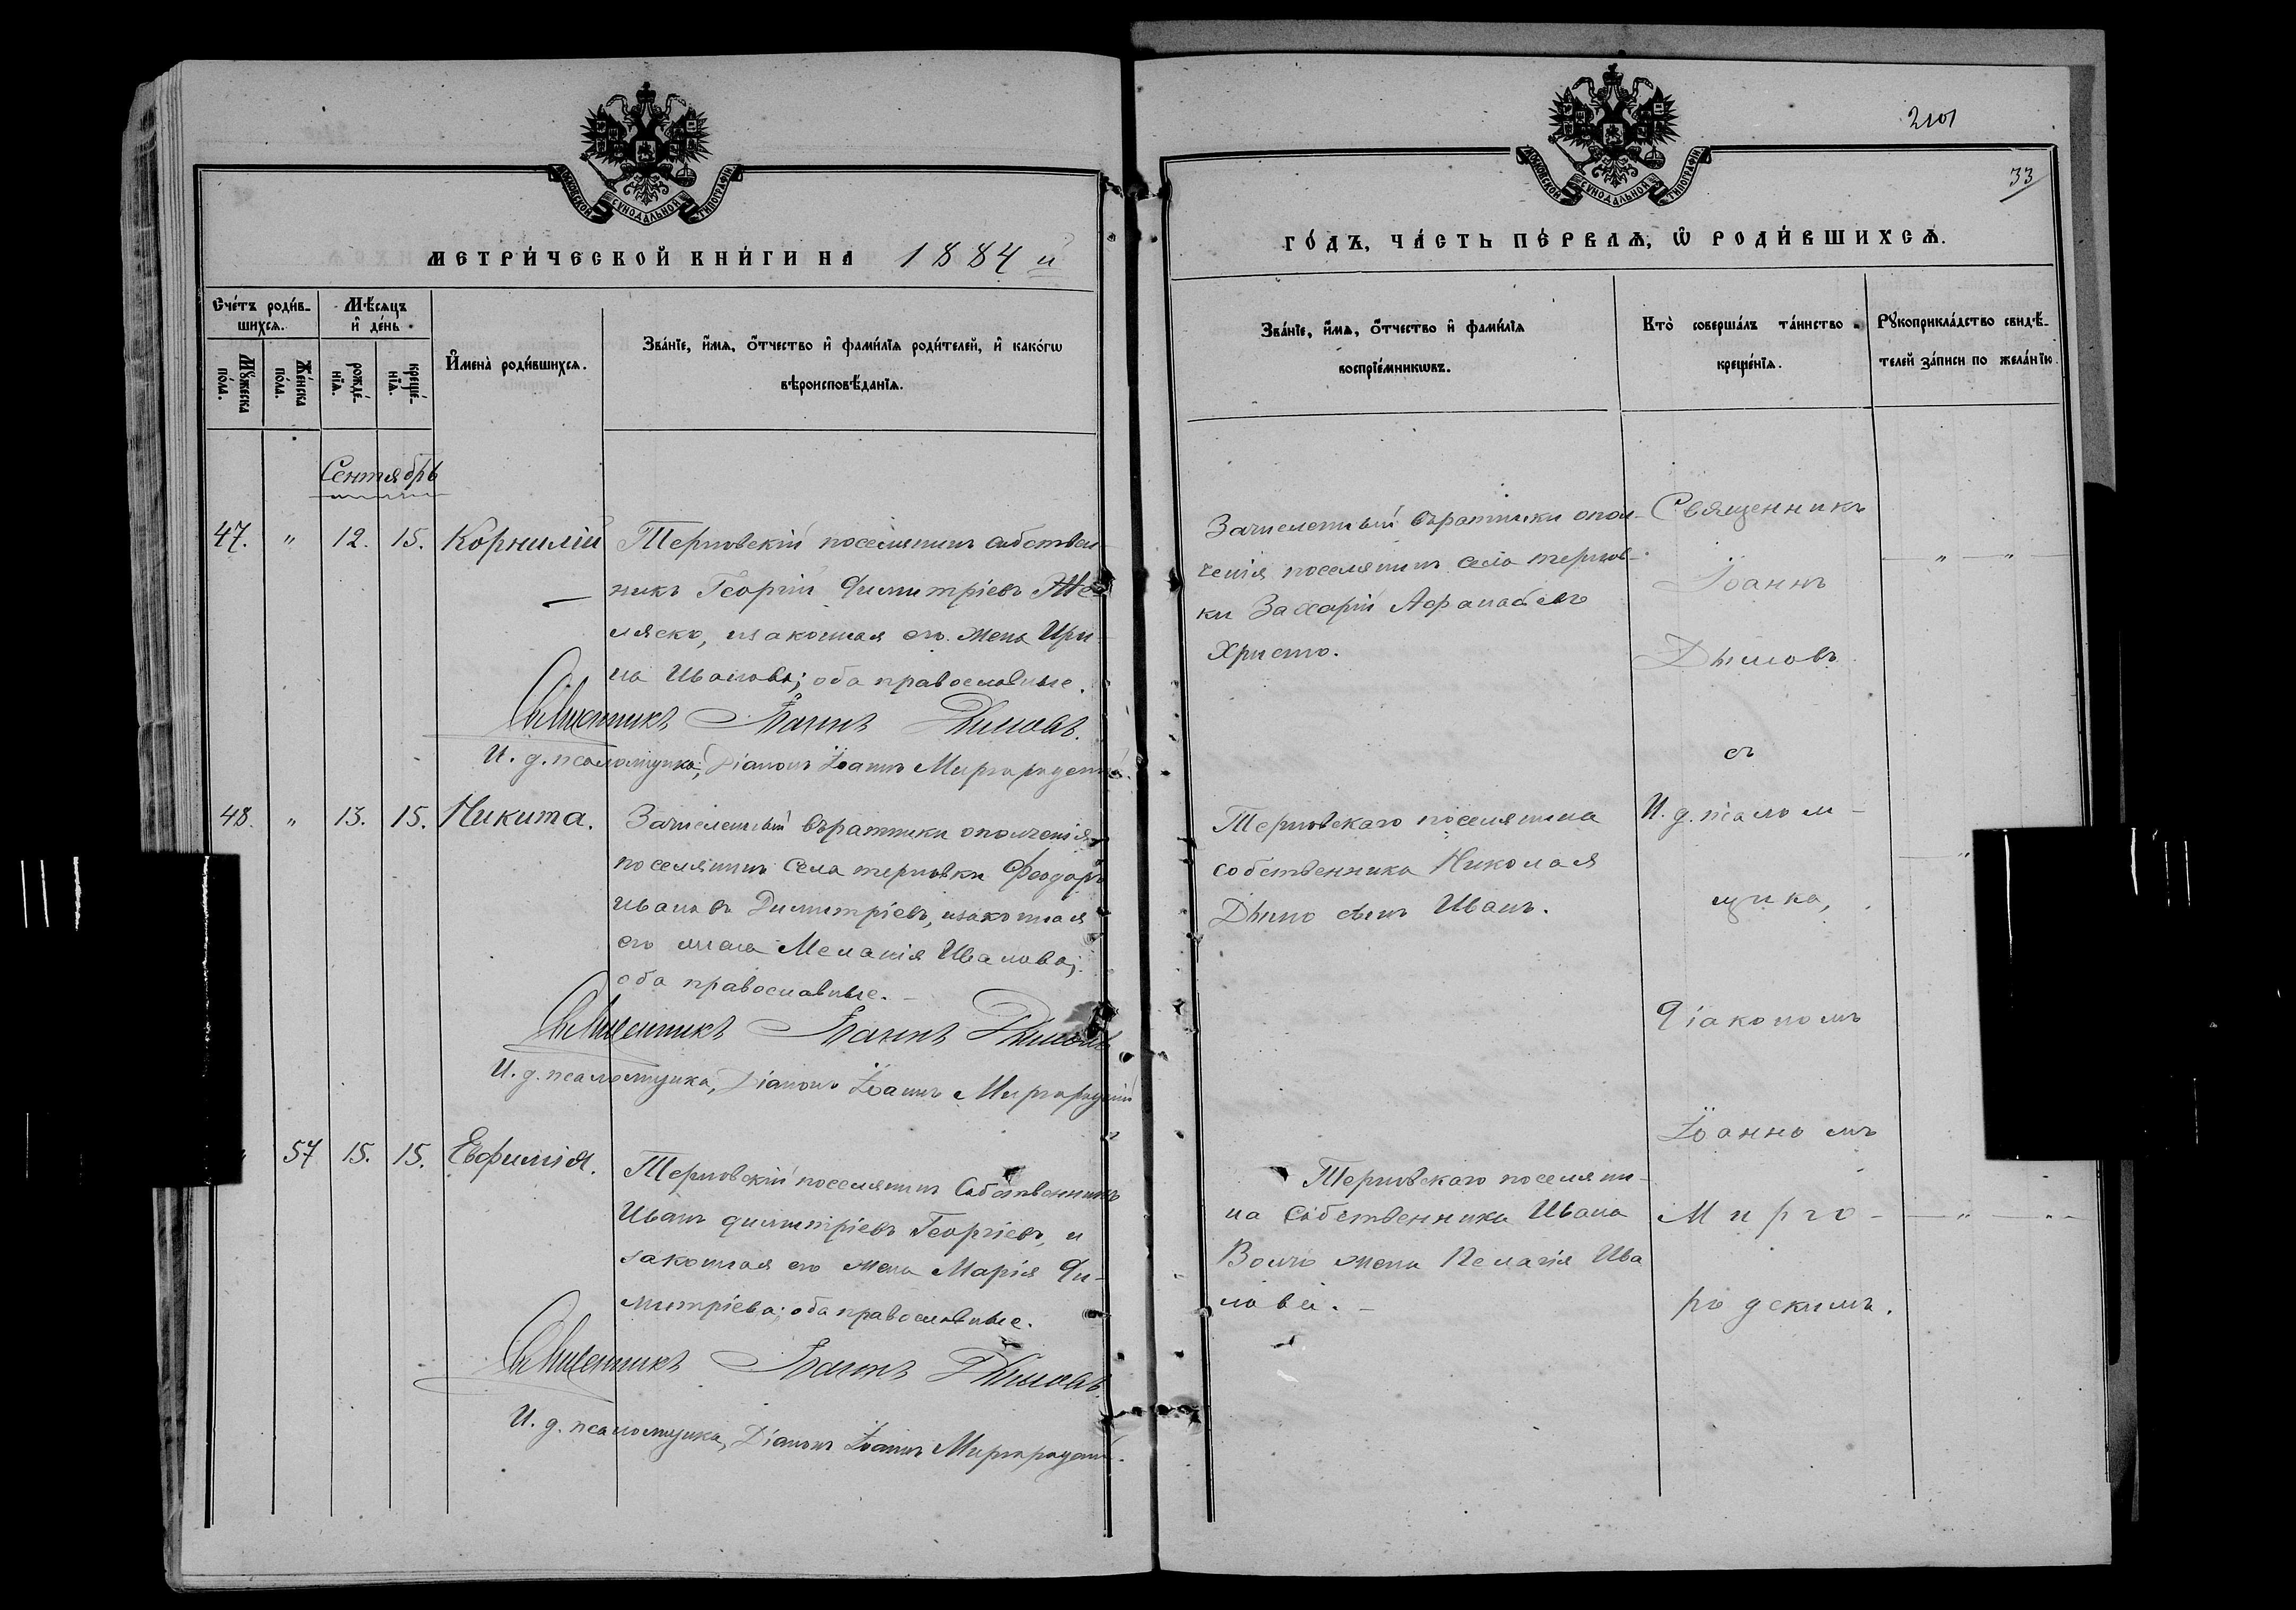 МОСКОВСКОЙ СѴНОДАЛЬНОЙ ТИПОГРАФІИ
МЕТРИ́ЧЕСКОЙ КНИ́ГИ НА 1884 й
Счетъ роди́в-
шихсѧ.
Мѣ́сѧцъ
и҆ де́нь
Мꙋ́жеска
по́ла.
Же́нска
по́ла.
рожде́-
нїѧ.
креще́-
нїѧ.
И҆мена̀ роди́вшихсѧ.
Зва́нїе, и҆́мѧ, ѻ҆́тчество и҆ фами́лїѧ роди́телей, и҆ како́гѡ
вѣроисповѣ́данїѧ.
Сентябрь
47. " 12. 15. Корнилій
Терновскій поселянинъ собствен-
никъ Георгій Димитріевъ
ляско, изаконная его жена Ири-
на Иванова; оба православные.
Священникъ Іоаннъ Дымовъ.
И. д. псаломщика, Діаконъ Іоаннъ Миргородскій.
48. " 13. 15. Никита.
Зачисленный въратники ополченія,
поселянинъ села терновки Феодоръ
Ивановъ Димитріевъ, изаконная
его жена Меланія Иванова;
оба православные. –
Священникъ Іоаннъ Дымовъ
И. д. псаломщика, Діаконъ Іоаннъ Миргородскій
57 15. 15. Евфимія.
Терновскій поселянинъ Собственникъ
Иванъ димитріевъ Георгіевъ, и
законная его жена Марія Ди-
митріева; оба православные.
Священникъ Іоаннъ Дымовъ.
И. д. псаломщика, Діаконъ Іоаннъ Миргородскій.
201
33
МОСКОВСКОЙ СѴНОДАЛЬНОЙ ТИПОГРАФІИ
ГО́ДЪ, ЧА́СТЬ ПЕ́РВАѦ, Ѽ РОДИ́ВШИХСѦ.
Зва́нїе, и҆́мѧ, ѻ҆́тчество и҆ фами́лїѧ
воспрїе́мникѡвъ.
Кто̀ соверша́лъ та́инство
креще́нїѧ.
Рꙋкоприкла́дство свидѣ́-
телей за́писи по жела́нїю.
Зачисленный въратники опол-
ченія поселянинъ села тернов-
ки Захарій Афанасьевъ
Христо.
Терновскаго поселянина
собственника Николая
Дымо сынъ Иванъ.
Терновскаго поселяни-
на Собственника Ивана
Волчо жена Пелагія Ива
нова. –
Священникъ
Іоаннъ
Дымовъ
съ
И. д. псалом-
щика,
Діакономъ
Іоанномъ
Мирго-
родскимъ.
" "
" "